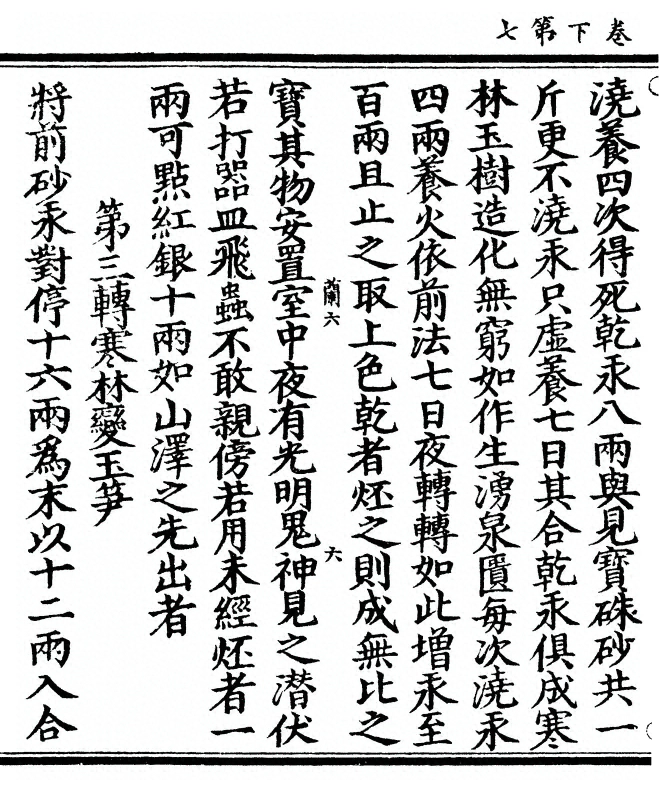 卷下第七
澆養四次得死乾汞八兩與見寶硃砂共一
斤更不澆汞只虛養七日其合乾汞俱成寒
林玉樹造化無窮如作生湧泉匱每次澆汞
四兩養火依前法七日夜轉轉如此增汞至
百兩且止之取上色乾者炋之則成無比之
蘭六
六
寶其物安置室中夜有光明鬼神見之潜伏
若打器皿飛蟲不敢親傍若用未經炋者一
兩可點紅銀十兩如山澤之先出者
第三轉寒林變玉笋
將前砂汞對停十六兩為末以十二兩入合